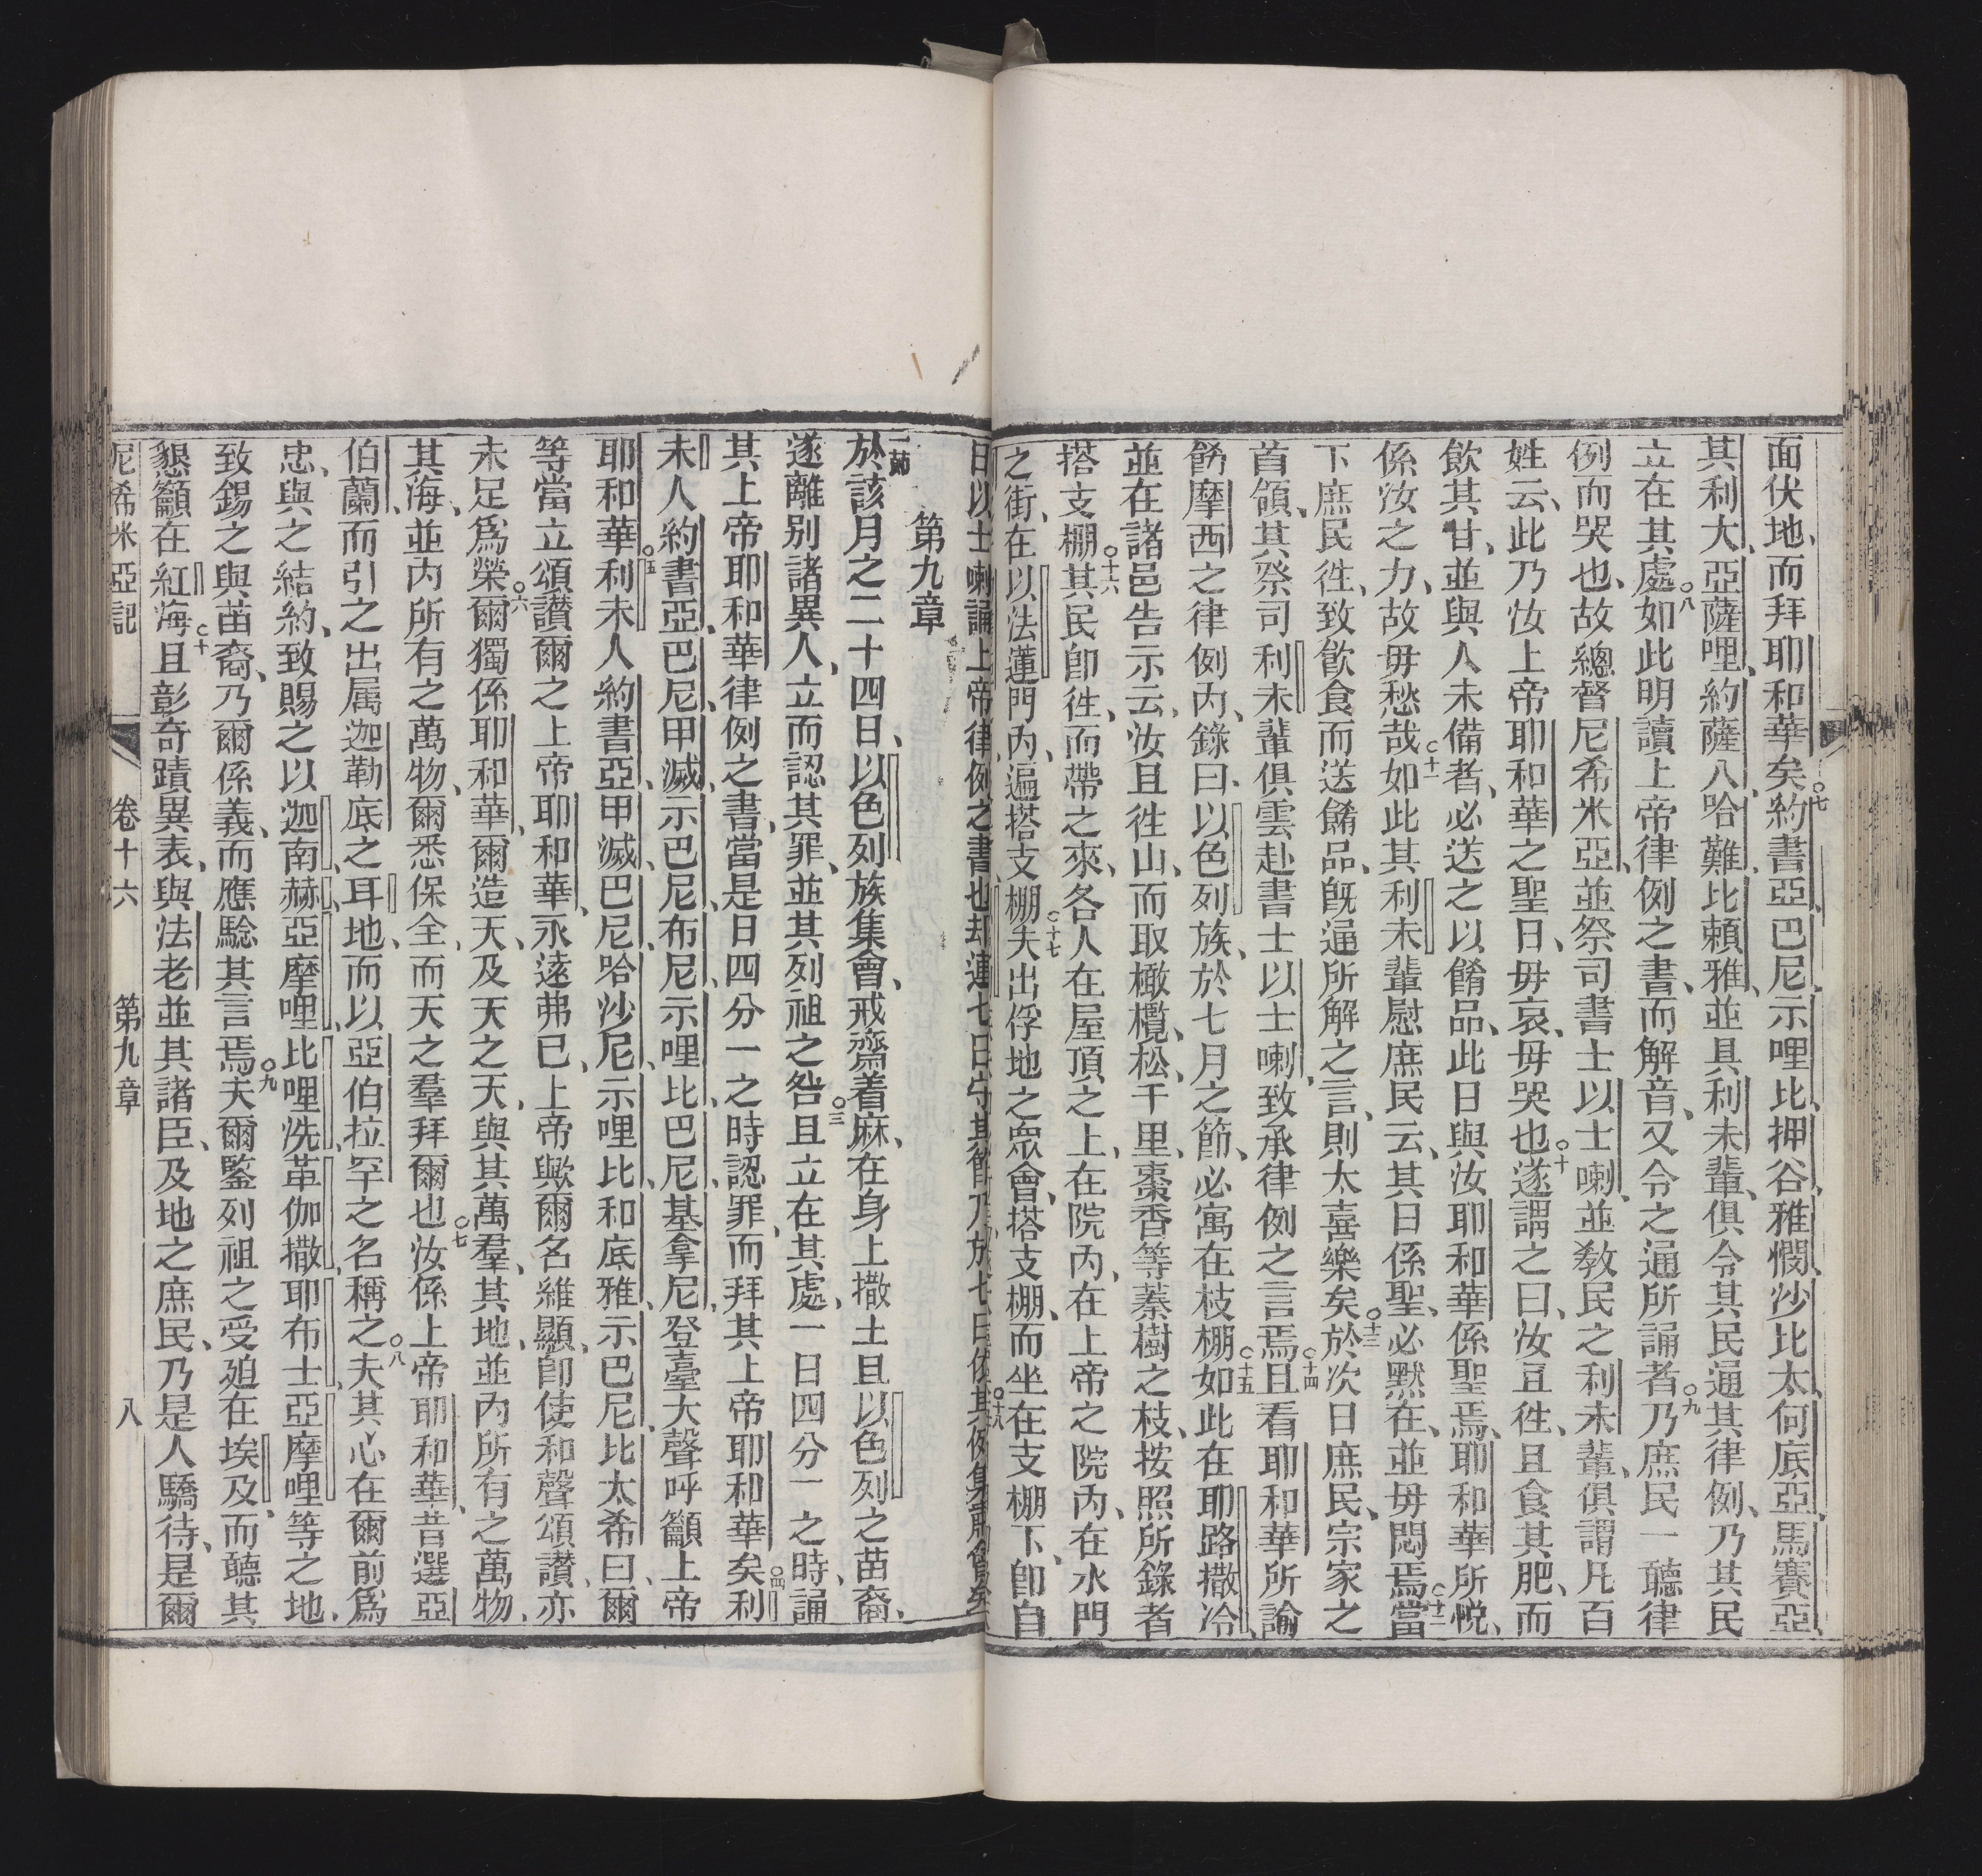 面伏地、而拜耶和華矣○七約書亞、巴尼、示哩比、押谷、雅憫、沙比太、何底亞、馬賽亞、
其利大、亞薩哩、約薩八、哈難、比賴雅、並具利未輩、俱令其民通其律例、乃其民
立在其處○八如此明讀上帝律例之書、而解音、又令之通所誦者○九乃庶民一聽律
例而哭也、故總督尼希米亞、並祭司書士以士喇、並教民之利未輩、俱謂凡百
姓云、此乃汝上帝耶和華之聖日、毋哀、毋哭也○十遂謂之曰、汝且徃、且食其肥、而
飲其甘、並與人未備者、必送之以餚品、此日與汝耶和華係聖焉、耶和華所悅、
係汝之力、故毋愁哉○十一如此其利未輩慰庶民云、其日係聖、必默在、並毋悶焉○十二當
下庶民徃、致飲食而送餚品、旣通所解之言、則大喜樂矣○十三於次日庶民、宗家之
首領、其祭司利未輩俱雲赴書士以士喇、致承律例之言焉○十四且看耶和華所諭
嗎摩西之律例內、錄曰、以色列族、於七月之節、必寓在枝棚○十五如此在耶路撒冷、
並在諸邑告示云、汝且徃山、而取橄欖、松、千里、棗、香等蓁樹之枝、按照所錄者
搭支棚○十六其民卽徃、而帶之來、各人在屋頂之上、在院內、在上帝之院內、在水門
之街、在以法蓮門內、遍搭支棚○十七夫出俘地之眾會、搭支棚、而坐在支棚下、卽自
日以士喇誦上帝律例之書也却連七日守其節乃於七日依其例集嚴會矣
第九章
一節於該月之二十四日、以色列族集會、戒齋着麻、在身上撒土且以色列之苗裔、
遂離別諸異人、立而認其罪、並其列祖之咎○三且立在其處、一日四分一之時、誦
其上帝耶和華律例之書、當是日四分一之時認罪、而拜其上帝耶和華矣○四利
未人約書亞、巴尼、甲滅、示巴尼、布尼、示哩比、巴尼、基拿尼、登臺大聲呼籲上帝
耶和華○五利未人約書亞、甲滅、巴尼、哈沙尼、示哩比、和底雅、示巴尼、比太希曰、爾
等當立頌讃爾之上帝耶和華、永遠弗已、上帝歟爾名維顯、卽使和聲頌讃、亦
未足爲榮○六爾獨係耶和華、爾造天、及天之天、與其萬羣、其地、並內所有之萬物、
其海、並內所有之萬物、爾悉保全、而天之羣拜爾也○七汝係上帝耶和華、昔選亞
伯蘭而引之出屬迦勒底之耳地、而以亞伯拉罕之名稱之○八夫其心在爾前爲
忠、與之結約、致賜之以迦南、赫、亞摩哩、比哩洗、革伽撒、耶布士、亞摩哩等之地、
致錫之與苗裔、乃爾係義、而應騐其言焉○九夫爾鑒列祖之受廹在埃及、而聽其
懇籲在紅海○十且彰奇蹟異表、與法老並其諸臣、及地之庶民、乃是人驕待、是爾
尼希米亞記 卷十六 第九章 八